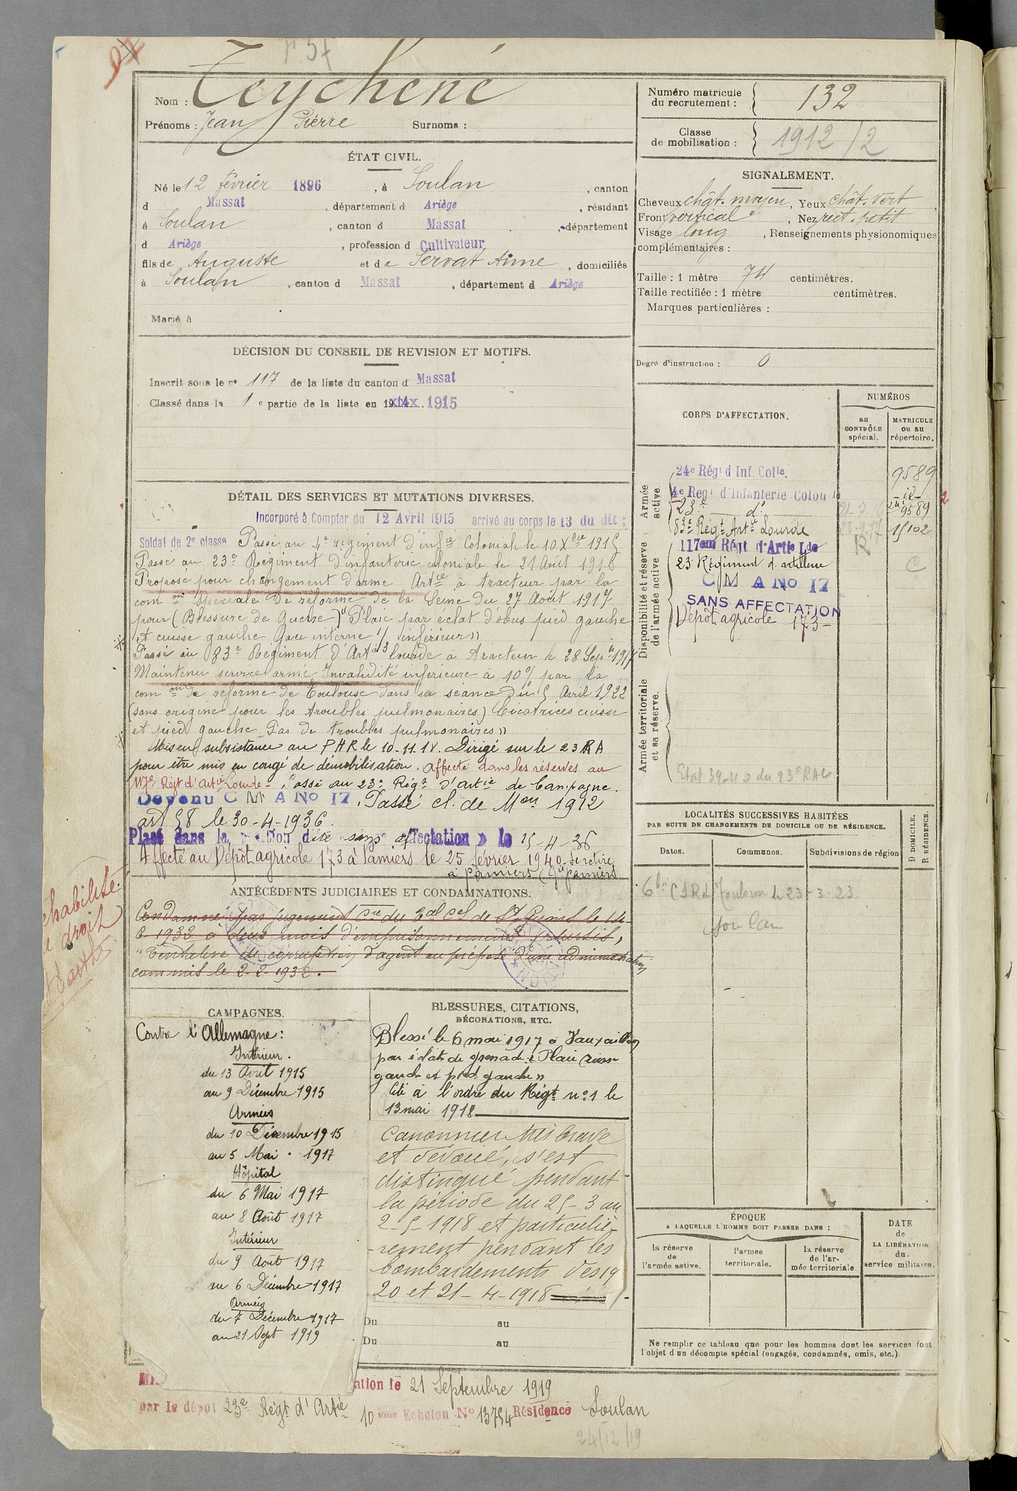 Nom : Teychené
Prénoms : Jean Pierre Surnoms :
Numéro matricule du recrutement : 132
Classe de mobilisation : 1912 / 2
ÉTAT CIVIL.
Né le 12 février 1896, à Soulan, canton
d Massat, département d Ariège, résidant
à Soulan, canton d Massat, département
d Ariège, profession d Cultivateur,
fils de Auguste et de Servat Anne, domiciliés
à Soulan, canton d Massat, département d Ariège
Marié à
DÉCISION DU CONSEIL DE REVISION ET MOTIFS.
Inscrit sous le nº 117 de la liste du canton d Massat
Classé dans la 1 e partie de la liste en 1915
DÉTAIL DES SERVICES ET MUTATIONS DIVERSES.
Incorporé à Compter du 12 Avril 1915 arrivé au corps le 13 du dit ;
Soldat de 2e classe Passé au 4e régiment d'infie Coloniale le 10 Xbre 1915
Passé au 23e Régiment d'infanterie coloniale le 21 Août 1916
Proposé pour changement d'arme Artie à tracteur par la
com on spéciale de réforme de la Seine du 27 Août 1917
pour (Blessure de Guerre) "Plaie par éclat d'obus pied gauche
et cuisse gauche face interne 1/3 inférieur"
Passé au 83e Régiment d'Artie lourde à tracteur le 28 Sepbre 1917
Maintenu service armé Invalidité inférieure à 10% par la
com on de réforme de Toulouse dans sa séance du 5 Avril 1922
(sans origine pour les troubles pulmonaires) Cicatrices cuisse
et pied gauche Pas de troubles pulmonaires"
Mis en subsistance au PHR le 10.11.18. Dirigé sur le 23 RA
pour être mis en congé de démobilisation. Affecté dans les réserves au
117e Régt d'Artie Lourde. Passé au 23e Régt d'Artie de Campagne.
Devenu C M A No 17. Passé cl. de Mon 1912
art 58 le 30-4-1936.
Placé dans la dite sans affectation » le 15-4-36
Affecté au Dépôt agricole 173 à Pamiers le 25 février 1940
ANTÉCÉDENTS JUDICIAIRES ET CONDAMNATIONS.
Condamné par jugement du de St Girons le
1932 à deux mois d'emprisonnement (sursis)
"Tentative de corruption d'agent ou préposé d'une administration
commis le 2-2-1932.
CAMPAGNES.
Contre l'Allemagne :
Intérieur.
du 13 Avril 1915
au 9 Décembre 1915
Armées
du 10 Décembre 1915
au 5 Mai 1917
Hôpital
du 6 Mai 1917
au 8 Août 1917
Intérieur
du 9 Août 1917
au 6 Décembre 1917
Armées
du 7 Décembre 1917
au 21 Sept 1919
BLESSURES, CITATIONS,
DÉCORATIONS, ETC.
Blessé le 6 mai 1917 à Vauxaillon
par éclats de grenade : Plaie cuisse
gauche et pied gauche"
Cité à l'ordre du Régt nº1 le
13 mai 1918
Canonnier très brave
et dévoué, s'est
distingué pendant
la période du 25-3 au
2-5 1918 et particuliè-
-rement pendant les
bombardements des 19
20 et 21-4-1918
Du au
Du au
ation le 21 Septembre 1919
par le dépôt 23e Régt d'Artie 10 ème Echelon No 13754 Résidence Soulan
24/12/19
SIGNALEMENT.
Cheveux chât. moyen, Yeux chât. vert,
Front vertical, Nez rect. petit
Visage long, Renseignements physionomiques
complémentaires :
Taille : 1 mètre 74 centimètres.
Taille rectifiée : 1 mètre centimètres.
Marques particulières :
Degré d'instruction : 0
CORPS D'AFFECTATION.
NUMÉROS
AU CONTRÔLE spécial.
MATRICULE OU AU répertoire.
Armée active.
24e Régt d Inf. Colle. 9589
4e Régt d'Infanterie Colon le -id-
23e d° 9589
83e Régt Artie Lourde 15102
Disponibilité et réserve de l'armée active
117eme Régt d'Artie Lde R
23 Régiment d'artillerie C
C M A No 17
SANS AFFECTATION
Dépôt agricole 173-
Armée territoriale et sa réserve.
LOCALITÉS SUCCESSIVES HABITÉES
PAR SUITE DE CHANGEMENTS DE DOMICILE OU DE RÉSIDENCE.
Dates. Communes. Subdivisions de région
D DOMICILE.
R RÉSIDENCE.
Toulouse le 23-3-23
Soulan
ÉPOQUE
A LAQUELLE L'HOMME DOIT PASSER DANS :
la réserve de l'armée active.
l'armée territoriale.
la réserve de l'armée territoriale
DATE de LA LIBÉRATION du service militaire.
Ne remplir ce tableau que pour les hommes dont les services font
l'objet d'un décompte spécial (engagés, condamnés, omis, etc.).